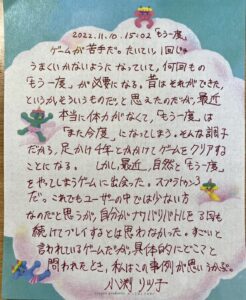 2022.11.10.15:02 「もう一度」
ゲームが苦手だ。たいてい、1回じゃ
うまくいかないようになっていて、何回もの
「もう一度」が必要になる。昔はそれができた、
というか、そういうものだ、と思えたのだが、最近
本当に体力がなくて、「もう一度」は
「また今度」になってしまう。そんな調子
だから、足かけ4年とかかけてゲームをクリアする
ことになる。しかし、最近、自然と「もう一度」
をやってしまうゲームに出会った。スプラトゥーン3
だ。これでもユーザーの中では少ない方
なのだと思うが、自分がナワバリバトルを3回も
続けてプレイするとは思わなかった。すごいと
言われているゲームだが、具体的にどこと
問われたとき、私はこの事例が思いうかぶ。
小渕 リツ子